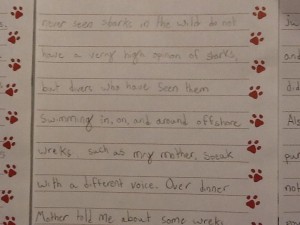 never seen sharks in the wild do not
have a very high opinion of sharks,
but divers who have seen them
swimming in, on, and around offshore
wreks such as my mother, speak
with a different voice. Over dinner
Mother told me about some wreks
ju
and
did
Al
pu
not